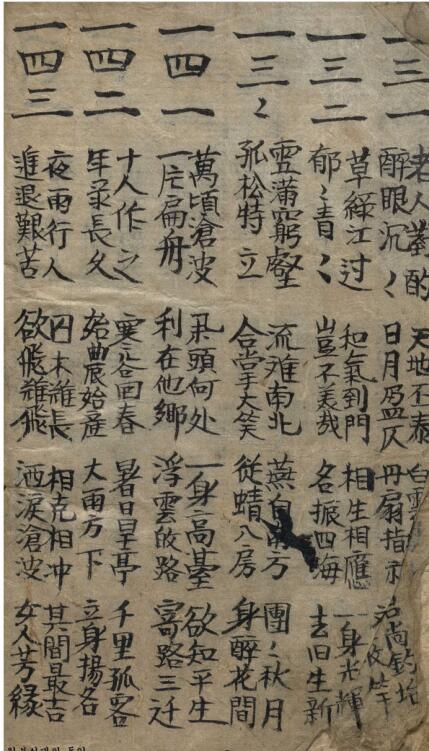 一三一
老人對酌 天地否泰 白雲
醉眼沉〻 日月盈仄 丹扇指示
一三二
草綠江过 和氣到門 相生相應 一身光輝
郁〻青〻 豈不美哉 名振四海 去旧生新
一三〻
雪滿窮壑 流难南北 燕自南方 團〻秋月
孤松特立 合掌大笑 從蜻入房 身醉花間
一四一
萬頃滄波 風頭何处 一身高臺 欲知平生
一片扁舟 利在他鄉 浮雲皈路 寄路三迁
一四二
十人作之 寒谷回春 暑日旱亭 千里孤客
年彔長久 始農始產 大雨方下 立身揚名
一四三
夜雨行人 囚木維長 相克相冲 其間最吉
進退艱苦 欲飛難飛 洒淚滄波 女人芳緣